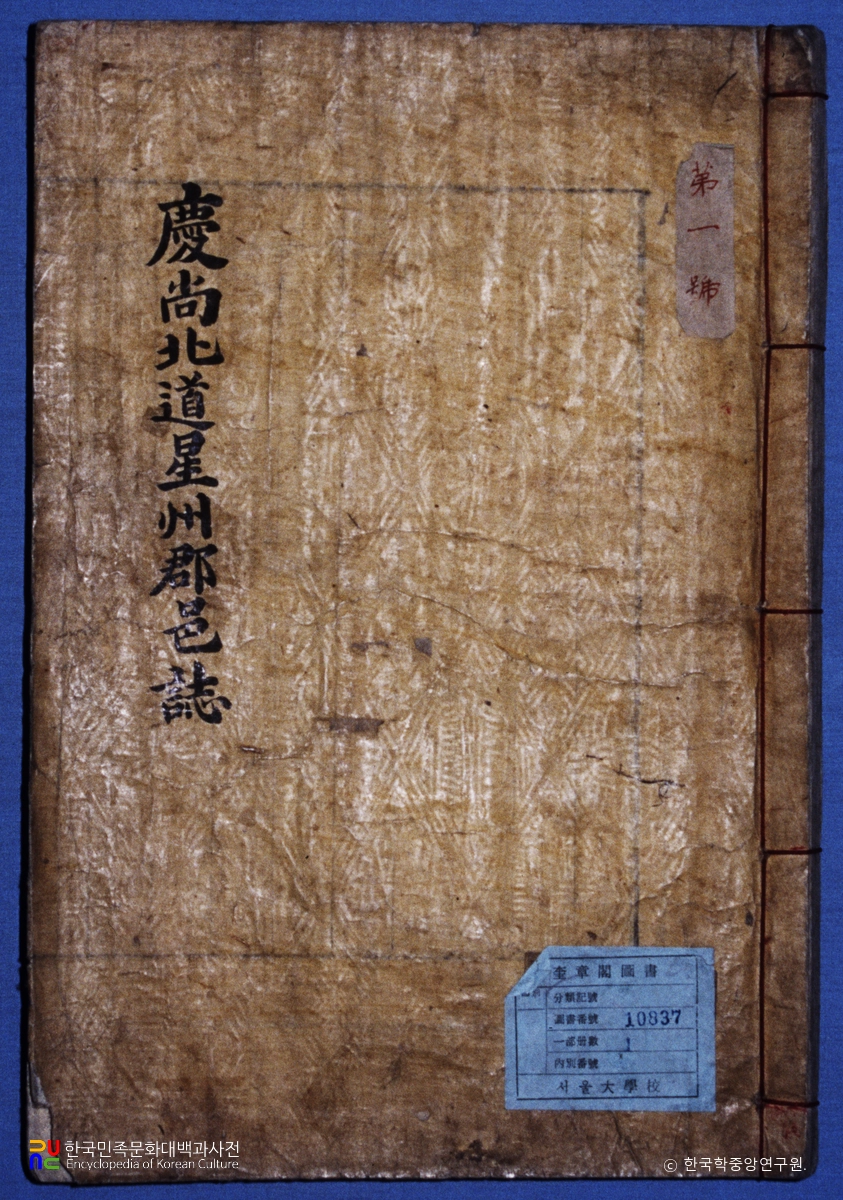 慶尙北道星州郡邑誌
第一號
奎章閣圖書
分類記號
圖書番號 10837
一部冊數 1
內別番號
서울大學校
한국민족문화대백과사전
Encyclopedia of Korean Culture
© 한국학중앙연구원.